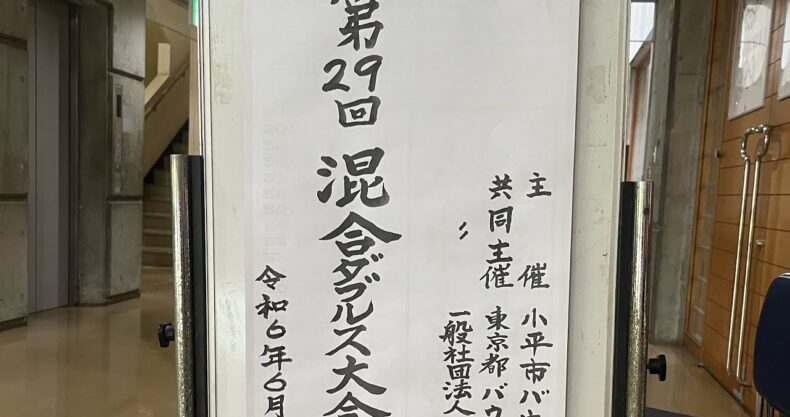 主催 小平市バ
共同主催 東京都バウ
〃 一般社団法人
第29回 混合ダブルス大会
令和6年6月